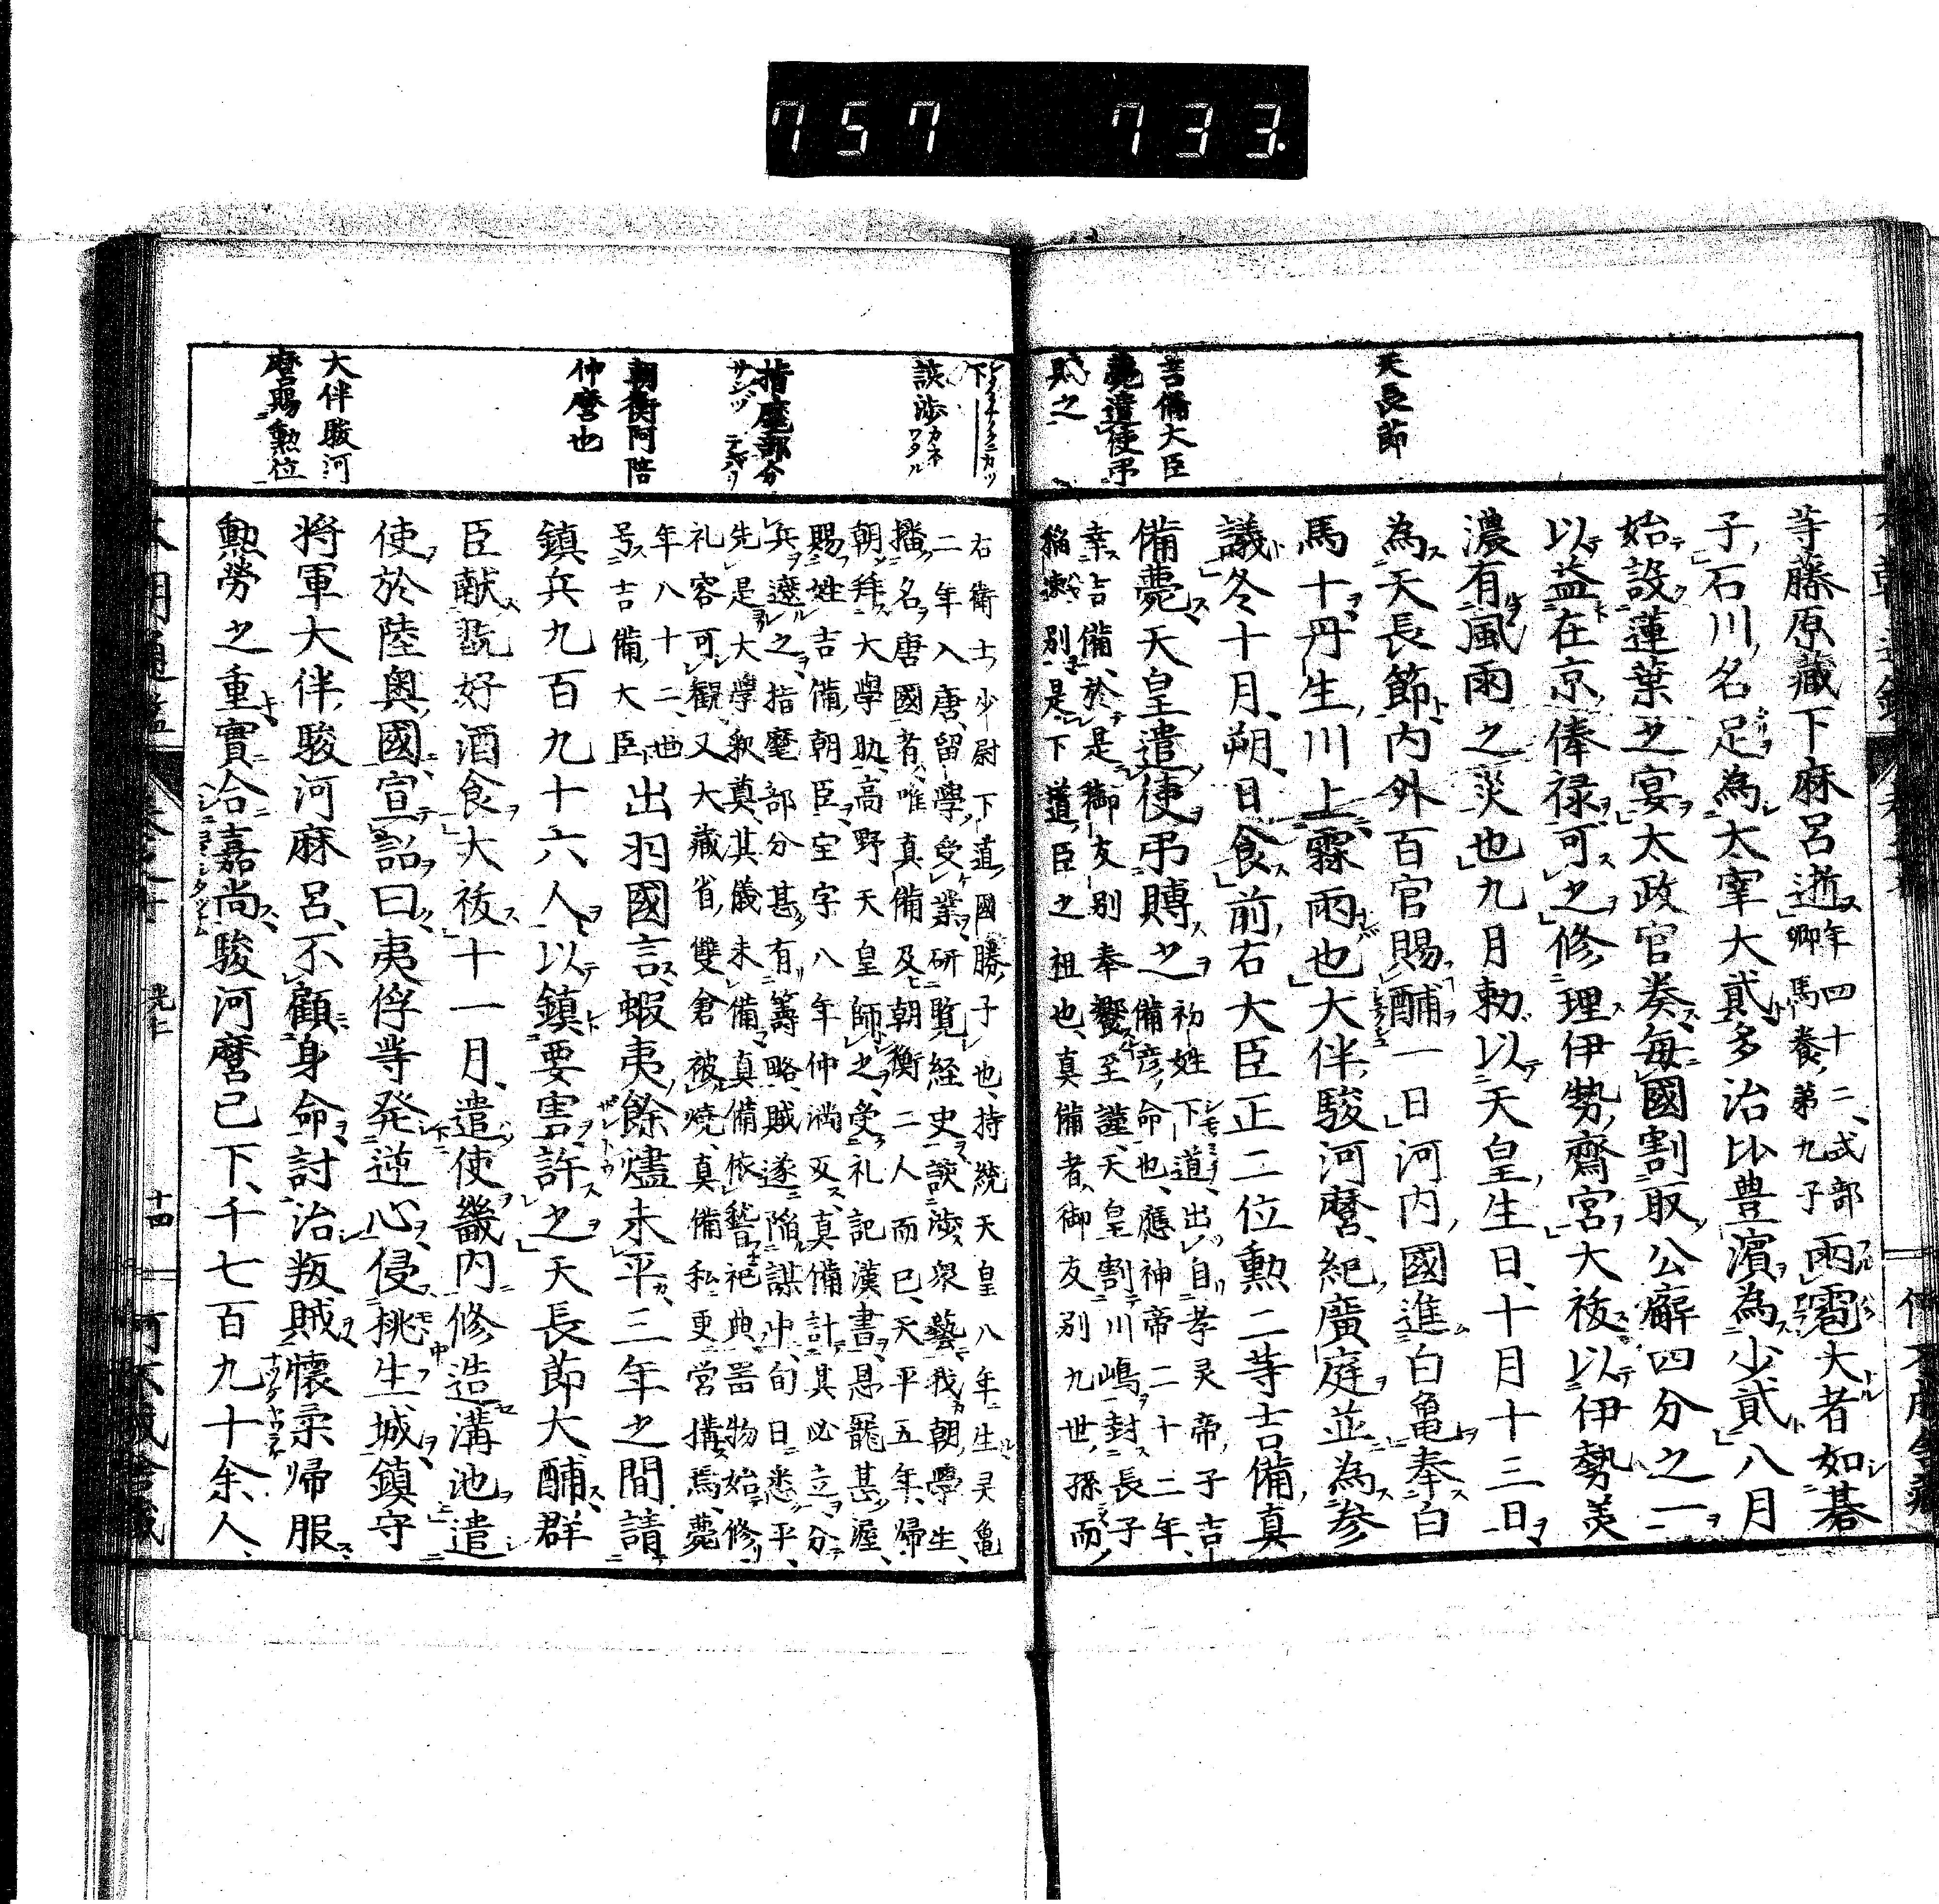 757 733.
天長節
吉備大臣
薨遣使弔
賻之
等藤原藏下麻呂逝年四十二、式部
卿馬養、第九子雨雹大者如碁
子、石川名足為太宰大貳多治比豊濱為少貳八月
始設蓮葉之宴太政官奏毎國割取公廨四分之一
以益在京俸禄可之修理伊勢齋宮大祓以伊勢美
濃有風雨之災也九月勅以天皇生日、十月十三日
為天長節内外百官賜酺一日河内國進白亀奉白
馬十丹生川上霖雨也大伴駿河麿、紀廣庭並為参
議冬十月朔日食前右大臣正二位勲二等吉備真
備薨天皇遣使弔賻之
初姓下道出自孝灵帝子吉
備彦命也、應神帝二十二年、
幸吉備於是御友別奉饗至謹天皇割川嶋封長子
稲速別是下道臣之祖也真備者御友別九世孫而
下
談渉カネワタル
指麾部分
朝衡阿陪
仲麿也
大伴駿河
麿賜勲位
右衛士少尉下道國勝子也、持統天皇八年生灵亀
二年入唐留學受業研覧経史談渉衆藝我朝學生
播名唐國者唯真備及朝衡二人而已、天平五年歸
朝拜大學助高野天皇師之受礼記漢書恩寵甚渥、
賜姓吉備朝臣宝字八年仲満叉真備計其必立分
兵遮之指麾部分甚有籌略賊遂陥謀中旬日悉平、
先是大學釈奠其儀未備真備依稽祀典器物始修
礼容可觀又大藏省雙倉被焼真備私更営搆焉薨
年八十二、世
号吉備大臣出羽國言蝦夷餘燼未平三年之間請
鎮兵九百九十六人以鎮要害許之天長節大酺群
臣献翫好酒食大祓十一月遣使畿内修造溝池遣
使於陸奥國宣詔曰夷俘等発逆心侵桃生城鎮守
将軍大伴駿河麻呂不顧身命討治叛賊懐柔帰服
勲勞之重實合嘉尚駿河麿已下千七百九十余人、
光仁 十四